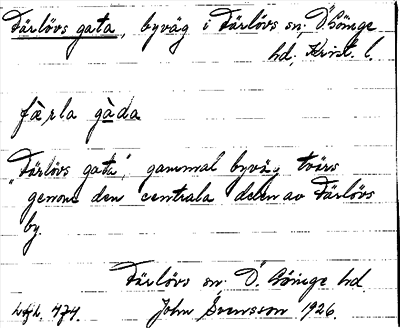 Färlövs gata, byväg i Färlövs sn; Ö. Göinge
hd, Krist. l.
fæ̀rla gàda
"Färlövs gata", gammal byväg tvärs
genom den centrala delen av Färlövs
by.
Färlövs sn. Ö. Göinge hd.
474. John Svensson 1926.